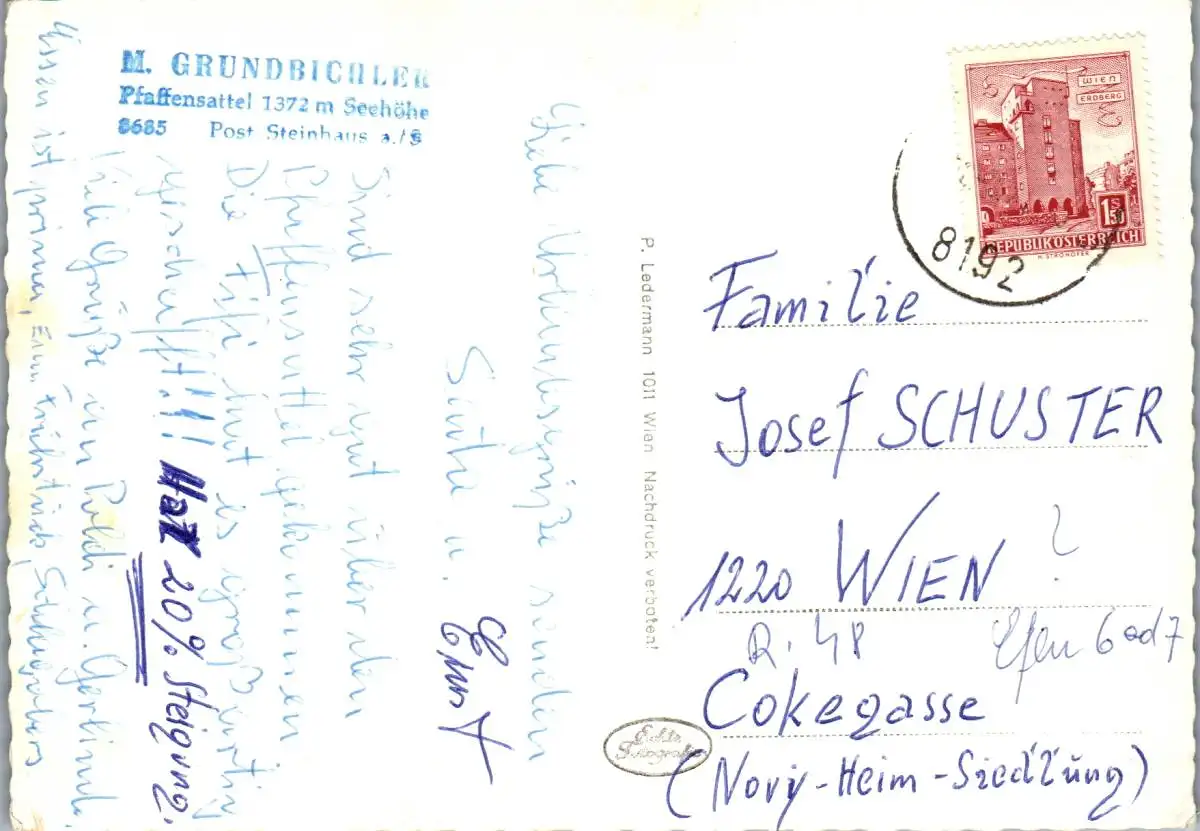 M. GRUNDBICHLER
Pfaffensattel 1372 m Seehöhe
8685 Post Steinhaus a./S
Liebe Urlaubsgrüße senden
Sintha u. Ernst
Sind sehr gut über den
Pfaffensattel gekommen
Die Fifi hat es großartig
geschafft!!!! Hat 20% Steigung.
Viele Grüße an Poldi u. Gerlinde.
Essen ist prima, zum Frühstück
P. Ledermann 1011 Wien Nachdruck verboten!
Echte
Fotografie
WIEN
ERDBERG
1 S 50
REPUBLIK ÖSTERREICH
H. STROHOFER
8192
Familie
Josef SCHUSTER
1220 WIEN ?
R. 48 6 od 7
Cokegasse
(Novy-Heim-Siedlung)